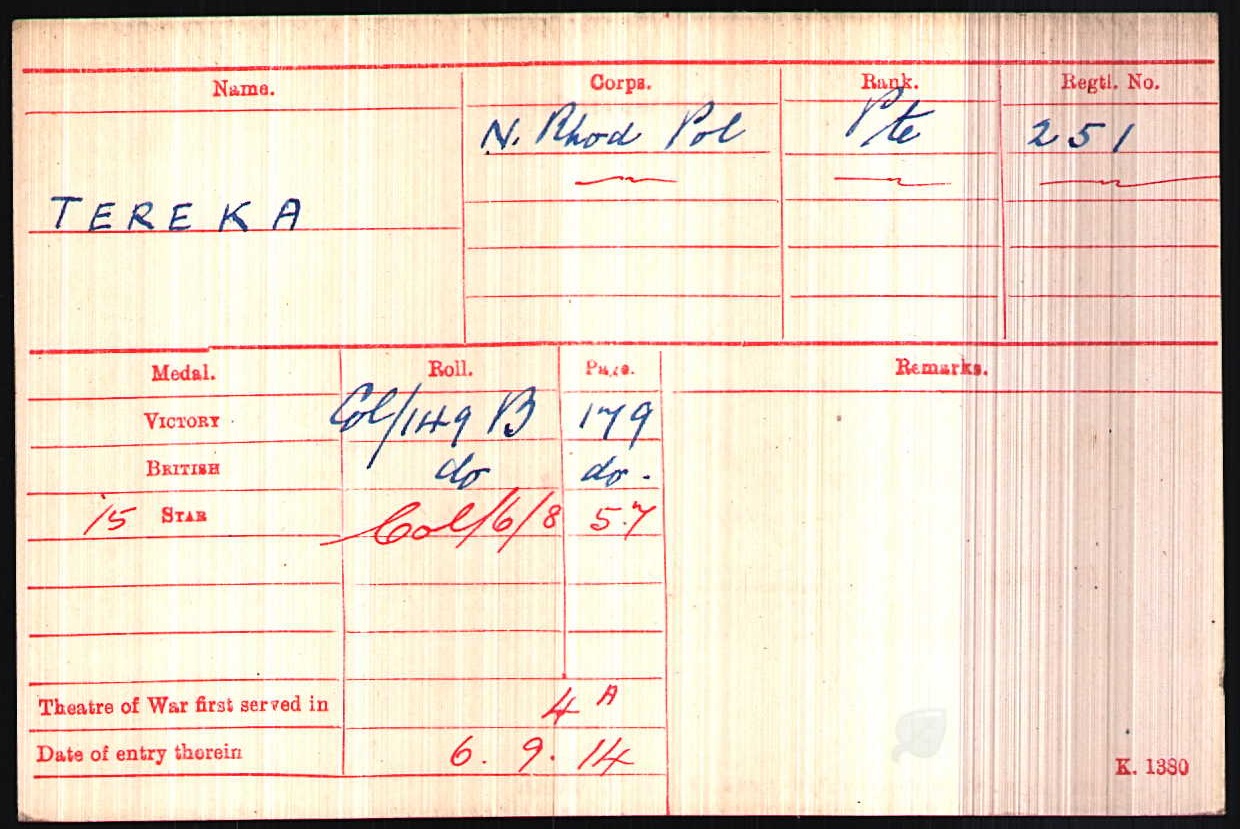 Name. Corps. Rank. Regtl. No.
N. Rhod Pol Pte 251
TEREKA
Medal. Roll. Page. Remarks.
VICTORY Col/149 B 179
BRITISH do do.
/15 STAR Col/6/8 57
Theatre of War first served in 4A
Date of entry therein 6. 9. 14
K. 1380